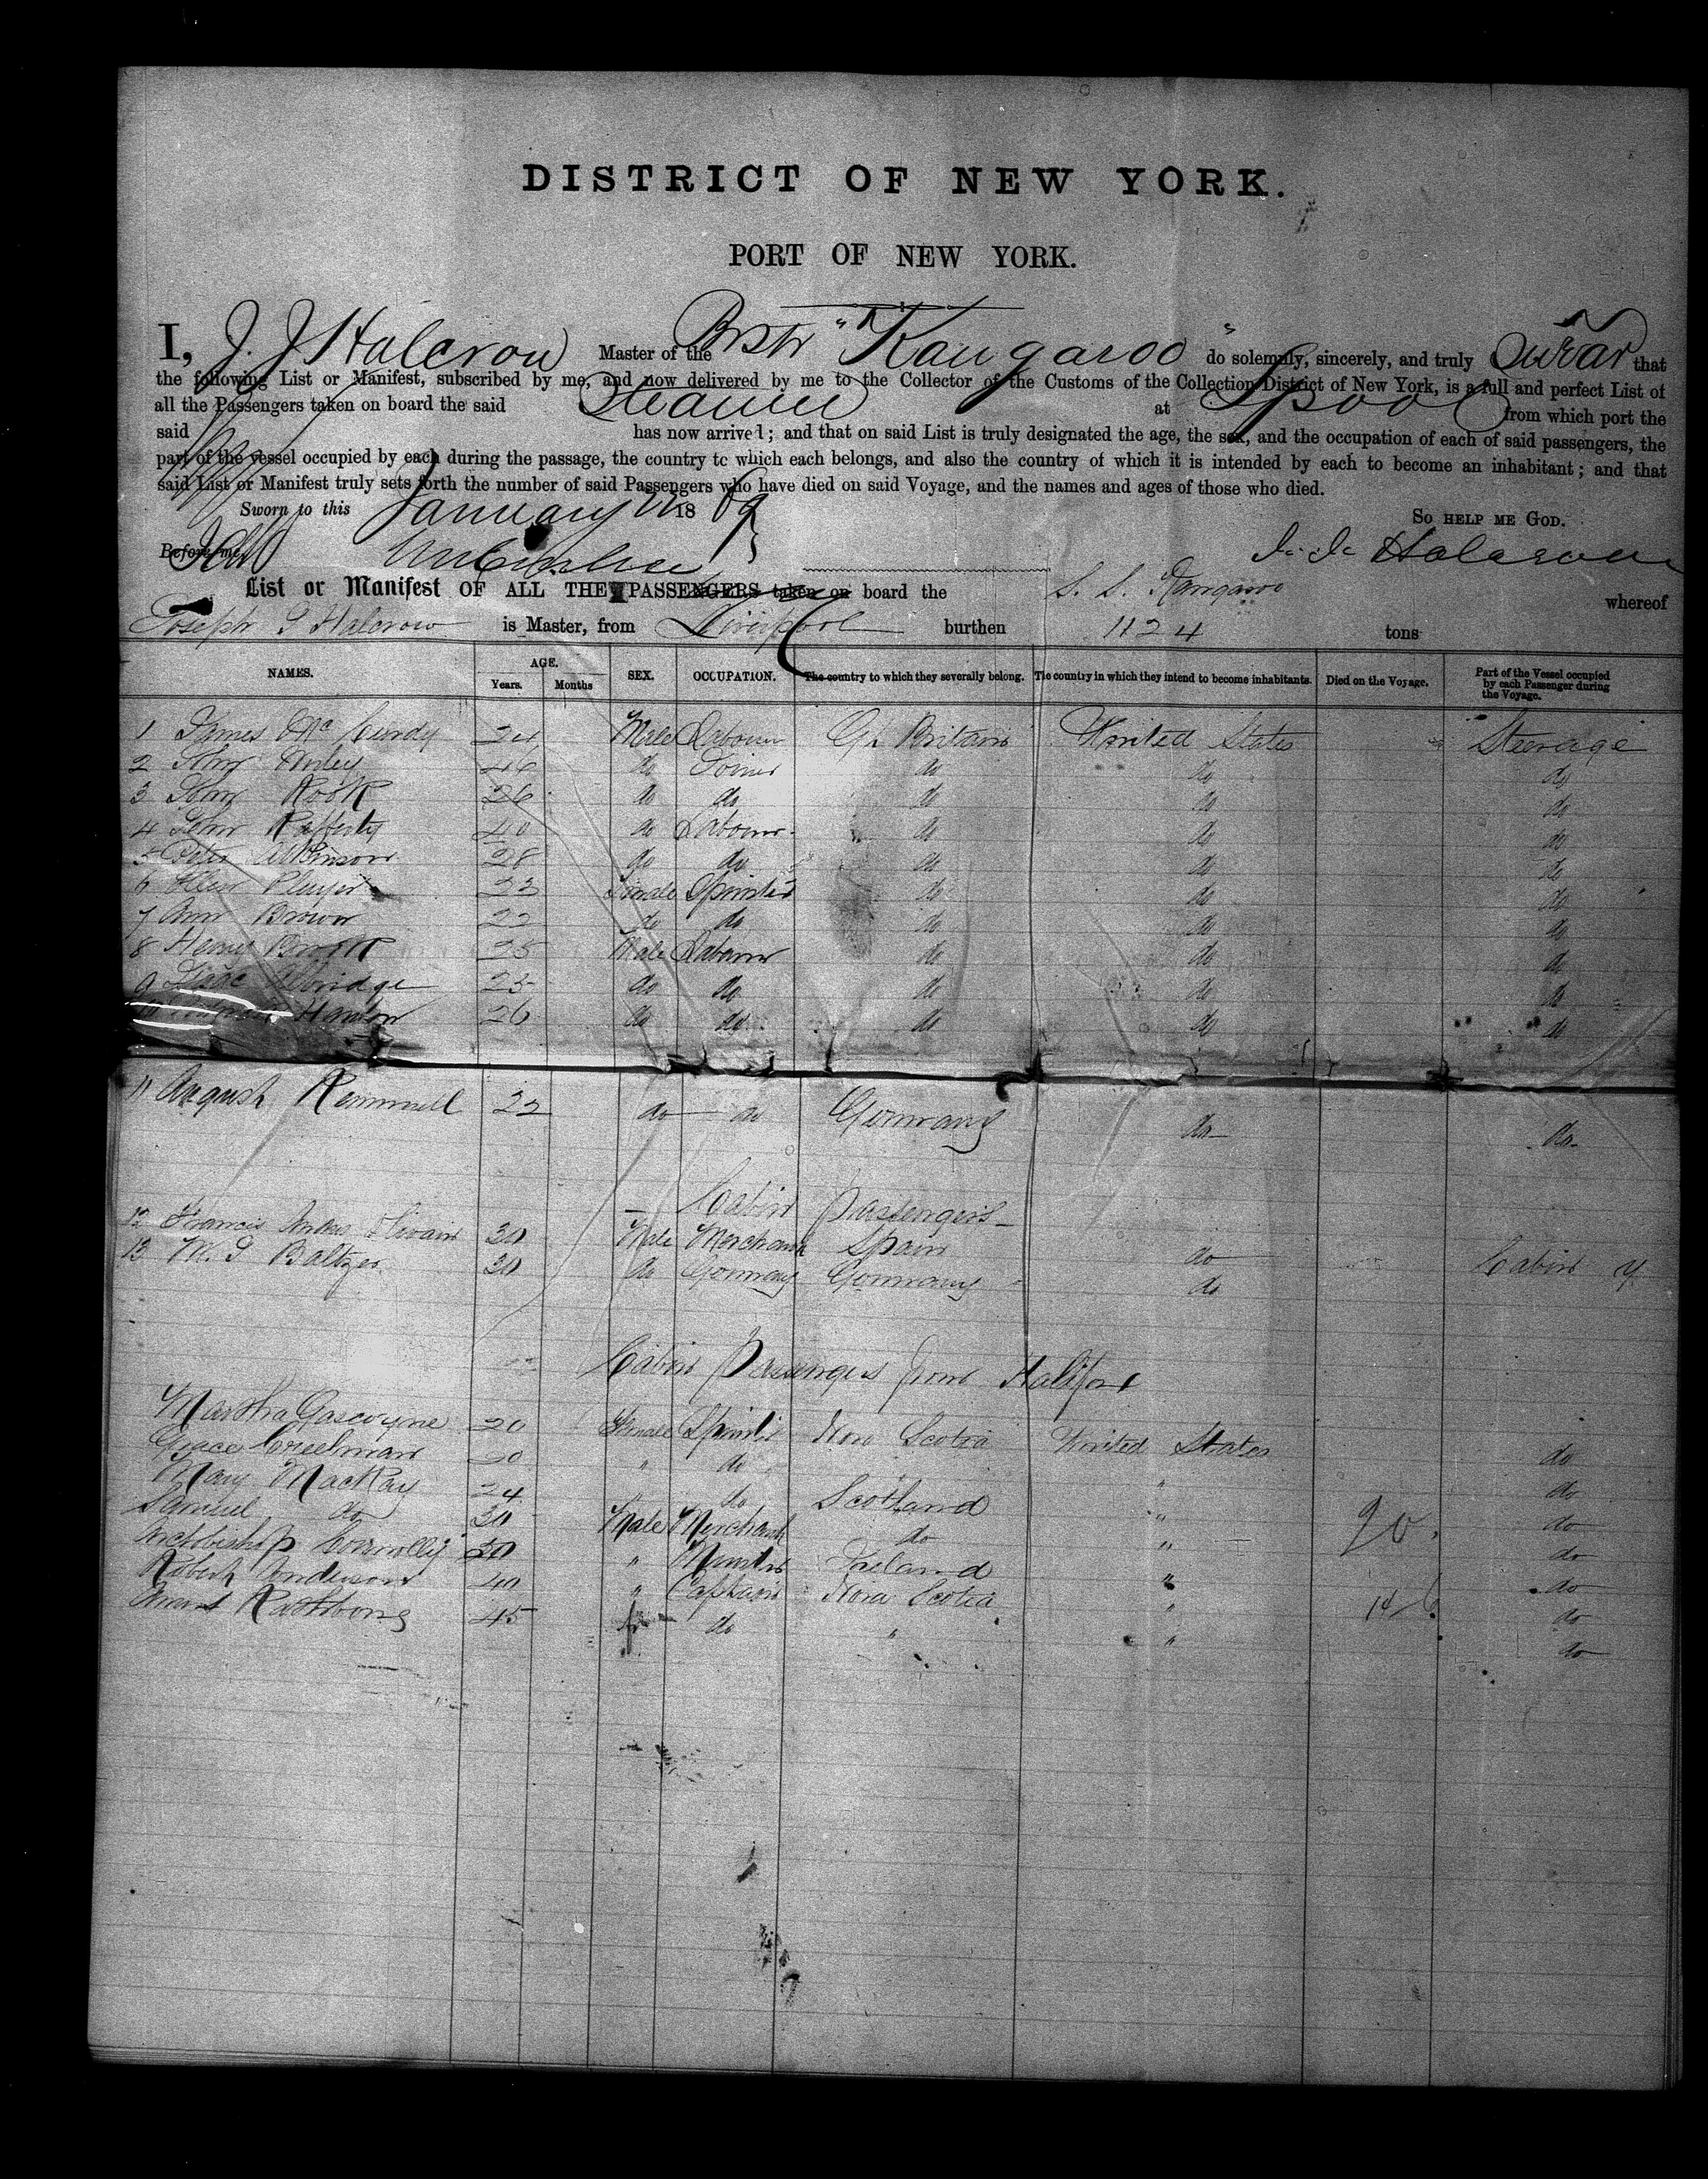 DISTRICT OF NEW YORK.
PORT OF NEW YORK.
I, J. J. Halcrow Master of the Br Str "Kangaroo" do solemnly, sincerely, and truly Swear that
the following List or Manifest, subscribed by me, and now delivered by me to the Collector of the Customs of the Collection District of New York, is a full and perfect List of
all the Passengers taken on board the said Steamer at Lpool from which port the
said has now arrived; and that on said List is truly designated the age, the sex, and the occupation of each of said passengers, the
part of the vessel occupied by each during the passage, the country to which each belongs, and also the country of which it is intended by each to become an inhabitant; and that
said List or Manifest truly sets forth the number of said Passengers who have died on said Voyage, and the names and ages of those who died.
Sworn to this January 1869 SO HELP ME GOD.
Before me, J. J. Halcrow
List or Manifest OF ALL THE PASSENGERS taken on board the S. S. Kangaroo whereof
Joseph J Halcrow is Master, from Liverpool burthen 1124 tons
NAMES. AGE. Years. Months SEX. OCCUPATION. The country to which they severally belong. The country in which they intend to become inhabitants. Died on the Voyage. Part of the Vessel occupied by each Passenger during the Voyage.
1 James McCurdy 24 Male Labourer Gt Britain United States Steerage
2 John 46 do Joiner do do do
3 John Rook 26 do do do do do
4 John Rafferty 40 do Labourer do do do
5 Peter Atkinson 28 do do do do do
6 Ellen Player 23 Female Spinster do do do
7 Ann Brown 22 do do do do do
8 Henry Brook 25 Male Labourer do do do
9 Isaac 25 do do do do do
10 Hanlon 26 do do do do do
11 August Remmell 22 do do Germany do do
Cabin Passengers
12 Francis 30 Male Merchant Spain do Cabin
13 M. S Baltzer 30 do Germany Germany do
Cabin Passengers from Halifax
Martha Gascoyne 20 Female Spinster Nova Scotia United States do
Grace Creelman 20 " do " do
Mary MacKay 24 do Scotland " do
Samuel do 30 Male Merchant do " do
Archbishop Connolly 50 " Minister Ireland " do
Robert Anderson 40 " Captain Nova Scotia " do
Rathbone 45 do " " do